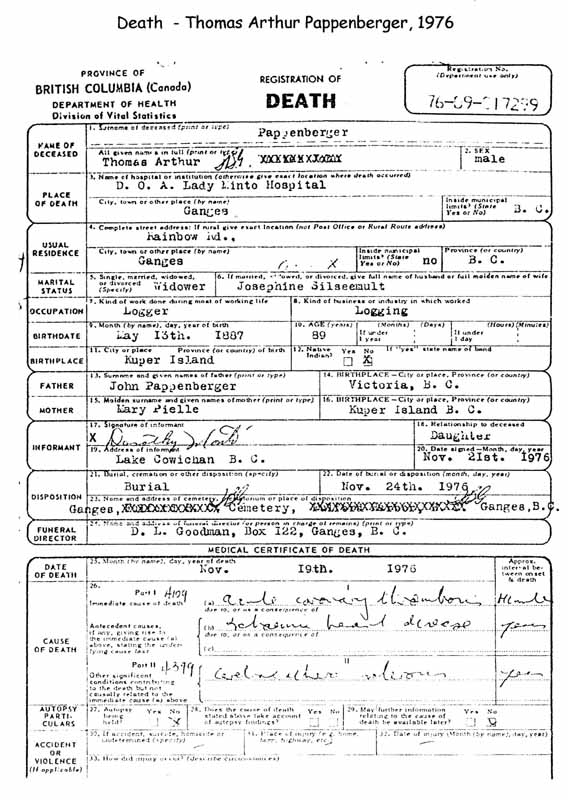 Death - Thomas Arthur Pappenberger, 1976
PROVINCE OF
BRITISH COLUMBIA (Canada)
DEPARTMENT OF HEALTH
Division of Vital Statistics
REGISTRATION OF
DEATH
Registration No.
(Department use only)
76-09-017299
NAME OF DECEASED
1. Surname of deceased (print or type)
Pappenberger
All given names in full (print or type)
Thomas Arthur
2. SEX
male
PLACE OF DEATH
3. Name of hospital or institution (otherwise give exact location where death occurred)
D. O. A. Lady Linto Hospital
City, town or other place (by name)
Ganges
Inside municipal limits? (State Yes or No)
B. C.
USUAL RESIDENCE
4. Complete street address: If rural give exact location (not Post Office or Rural Route address)
Rainbow Rd.,
City, town or other place (by name)
Ganges
Inside municipal limits? (State Yes or No)
no
Province (or country)
B. C.
MARITAL STATUS
5. Single, married, widowed, or divorced (Specify)
Widower
6. If married, widowed, or divorced, give full name of husband or full maiden name of wife
Josephine Silseemult
OCCUPATION
7. Kind of work done during most of working life
Logger
8. Kind of business or industry in which worked
Logging
BIRTHDATE
9. Month (by name), day, year of birth
May 13th. 1887
10. AGE (years)
89
(Months) (Days)
If under 1 year
(Hours) (Minutes)
If under 1 day
BIRTHPLACE
11. City or place Province (or country) of birth
Kuper Island
12. Native Indian?
Yes No
X
If "yes" state name of band
FATHER
13. Surname and given names of father (print or type)
John Pappenberger
14. BIRTHPLACE - City or place, Province (or country)
Victoria, B. C.
MOTHER
15. Maiden surname and given names of mother (print or type)
Mary Pielle
16. BIRTHPLACE - City or place, Province (or country)
Kuper Island B. C.
INFORMANT
17. Signature of informant
X Dorothy
18. Relationship to deceased
Daughter
19. Address of informant
Lake Cowichan B. C.
20. Date signed - Month, day, year
Nov. 21st. 1976
DISPOSITION
21. Burial, cremation or other disposition (specify)
Burial
22. Date of burial or disposition (month, day, year)
Nov. 24th. 1976
23. Name and address of cemetery, crematorium or place of disposition
Ganges, Cemetery, Ganges, B.C.
FUNERAL DIRECTOR
24. Name and address of funeral director (or person in charge of remains) (print or type)
D. L. Goodman, Box 122, Ganges, B. C.
MEDICAL CERTIFICATE OF DEATH
DATE OF DEATH
25. Month (by name), day, year of death
Nov. 19th. 1976
Approx. interval between onset & death
CAUSE OF DEATH
26.
Part I
Immediate cause of death
(a) acute coronary thrombosis
due to, or as a consequence of
Antecedent causes, if any, giving rise to the immediate cause (a) above, stating the underlying cause last
(b) ischaemic heart disease years
due to, or as a consequence of
(c)
Part II
Other significant conditions contributing to the death but not causally related to the immediate cause (a) above
II
years
AUTOPSY PARTICULARS
27. Autopsy being held?
Yes No
X
28. Does the cause of death stated above take account of autopsy findings?
Yes No
29. May further information relating to the cause of death be available later?
Yes No
ACCIDENT OR VIOLENCE
(If applicable)
30. If accident, suicide, homicide or undetermined (specify)
31. Place of injury (e.g. home, farm, highway, etc.)
32. Date of injury (Month (by name), day, year)
33. How did injury occur? (describe circumstances)